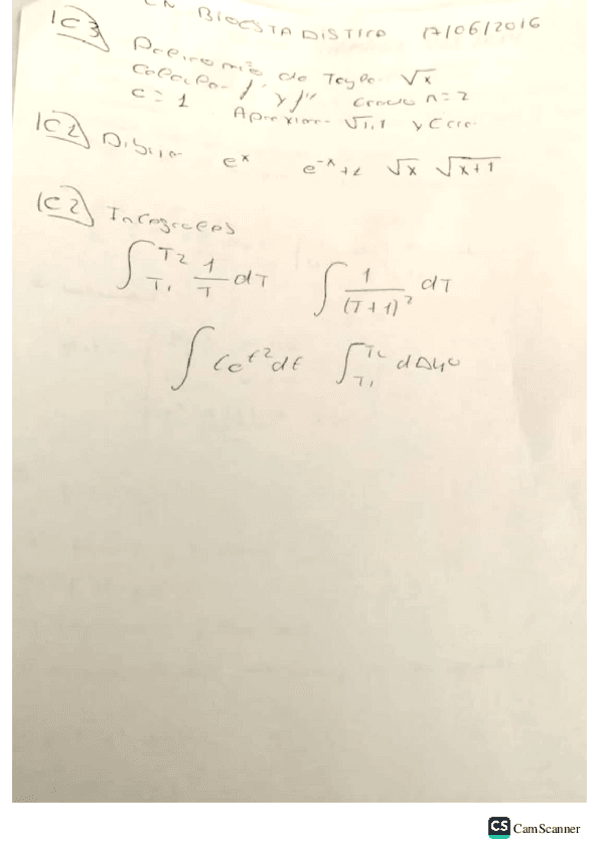 EN BIOESTADISTICA 17/06/2016
IC3) Polinomio de Taylor √x
Calcular f' y f'' Grado n=2
c = 1 Aproximar √1,1 y Error
IC1) Dibujar e^x e^-x √x √x+1
IC2) Integrales
∫T1 T2 1/T dT ∫ 1/(T+1)² dT
∫ dt ∫T1
CS CamScanner